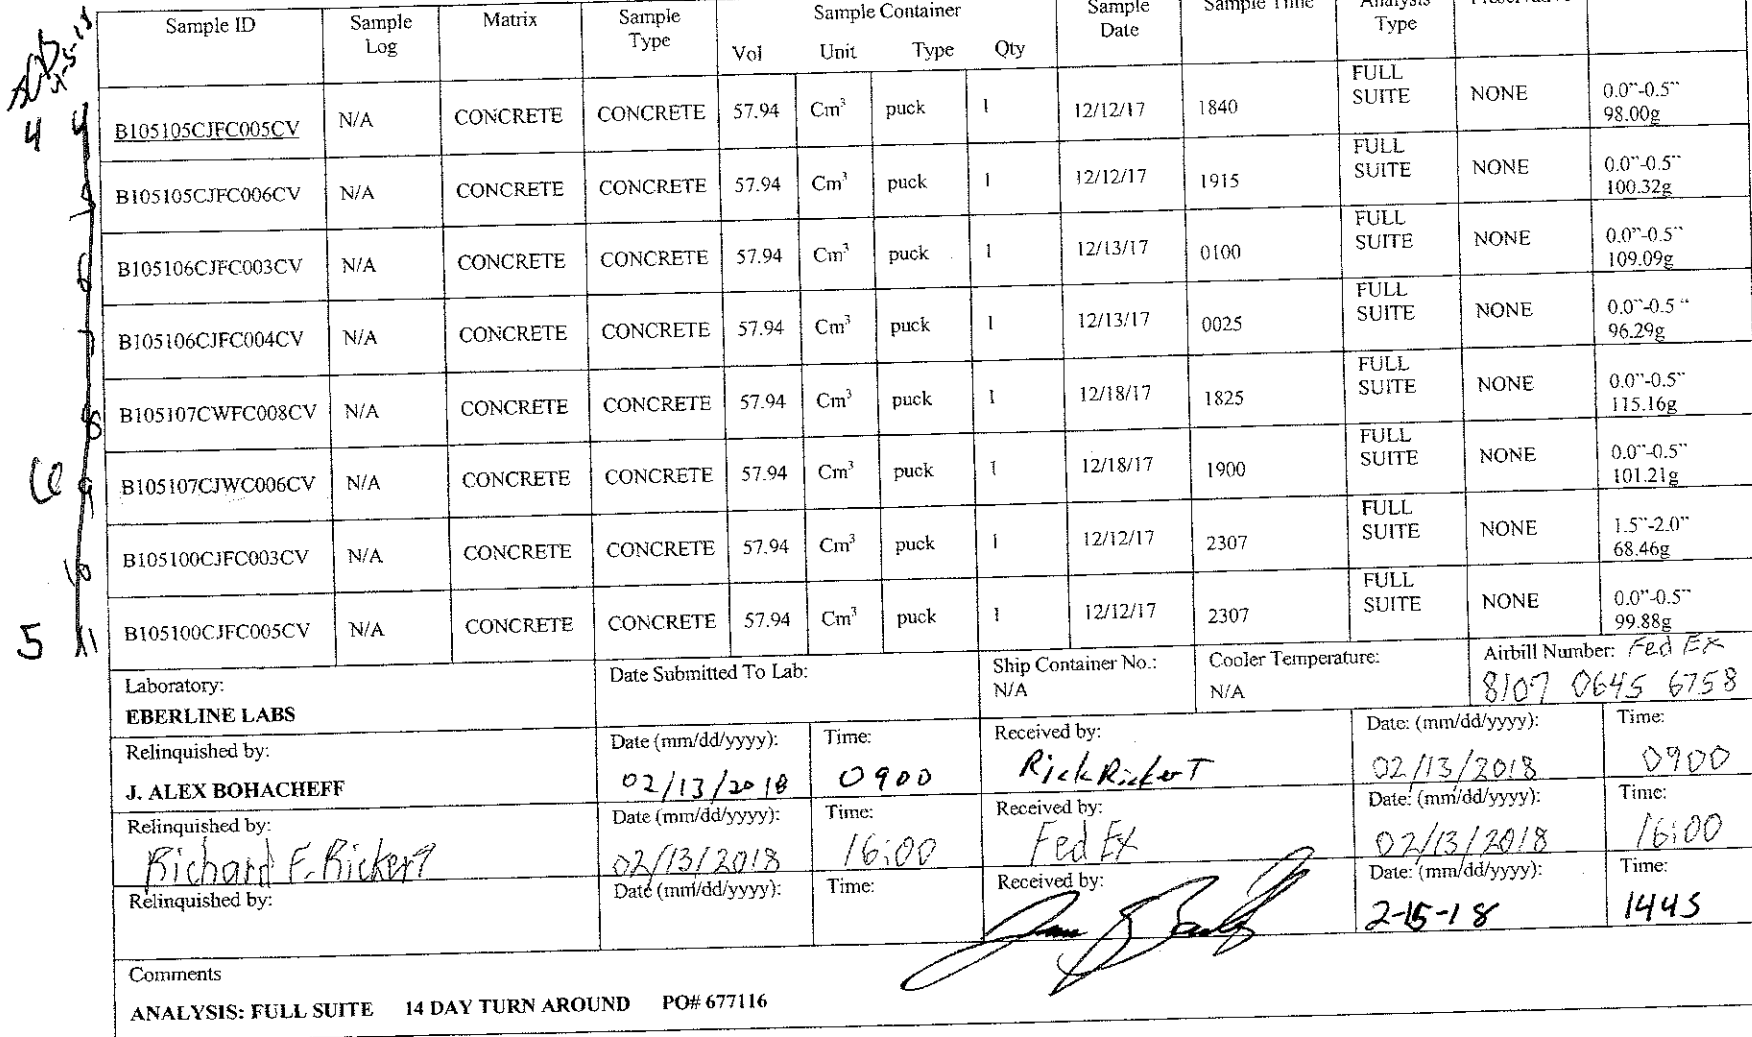 Sample ID Sample Log Matrix Sample Type Sample Container Sample Date Sample Time Analysis Type
Vol Unit Type Qty
4 4 B105105CJFC005CV N/A CONCRETE CONCRETE 57.94 Cm³ puck 1 12/12/17 1840 FULL SUITE NONE 0.0"-0.5" 98.00g
B105105CJFC006CV N/A CONCRETE CONCRETE 57.94 Cm³ puck 1 12/12/17 1915 FULL SUITE NONE 0.0"-0.5" 100.32g
6 B105106CJFC003CV N/A CONCRETE CONCRETE 57.94 Cm³ puck 1 12/13/17 0100 FULL SUITE NONE 0.0"-0.5" 109.09g
7 B105106CJFC004CV N/A CONCRETE CONCRETE 57.94 Cm³ puck 1 12/13/17 0025 FULL SUITE NONE 0.0"-0.5 " 96.29g
8 B105107CWFC008CV N/A CONCRETE CONCRETE 57.94 Cm³ puck 1 12/18/17 1825 FULL SUITE NONE 0.0"-0.5" 115.16g
9 B105107CJWC006CV N/A CONCRETE CONCRETE 57.94 Cm³ puck 1 12/18/17 1900 FULL SUITE NONE 0.0"-0.5" 101.21g
10 B105100CJFC003CV N/A CONCRETE CONCRETE 57.94 Cm³ puck 1 12/12/17 2307 FULL SUITE NONE 1.5"-2.0" 68.46g
5 11 B105100CJFC005CV N/A CONCRETE CONCRETE 57.94 Cm³ puck 1 12/12/17 2307 FULL SUITE NONE 0.0"-0.5" 99.88g
Laboratory: Date Submitted To Lab: Ship Container No.: Cooler Temperature: Airbill Number: Fed Ex
EBERLINE LABS N/A N/A 8107 0645 6758
Relinquished by: Date (mm/dd/yyyy): Time: Received by: Date: (mm/dd/yyyy): Time:
J. ALEX BOHACHEFF 02/13/2018 0900 Rick RickerT 02/13/2018 0900
Relinquished by: Date (mm/dd/yyyy): Time: Received by: Date: (mm/dd/yyyy): Time:
Richard F. Rickert 02/13/2018 16:00 Fed Ex 02/13/2018 16:00
Relinquished by: Date (mm/dd/yyyy): Time: Received by: Date: (mm/dd/yyyy): Time:
2-15-18 1445
Comments
ANALYSIS: FULL SUITE 14 DAY TURN AROUND PO# 677116